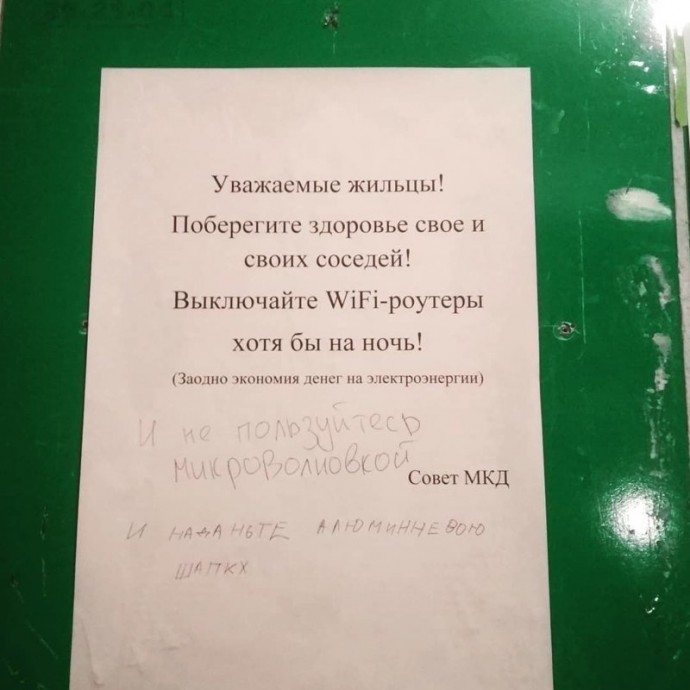 Уважаемые жильцы!
Поберегите здоровье свое и
своих соседей!
Выключайте WiFi-роутеры
хотя бы на ночь!
(Заодно экономия денег на электроэнергии)
И не пользуйтесь
микроволновкой
Совет МКД
И НАДАНЬТЕ АЛЮМИННЕВОЮ
ШАПКУ